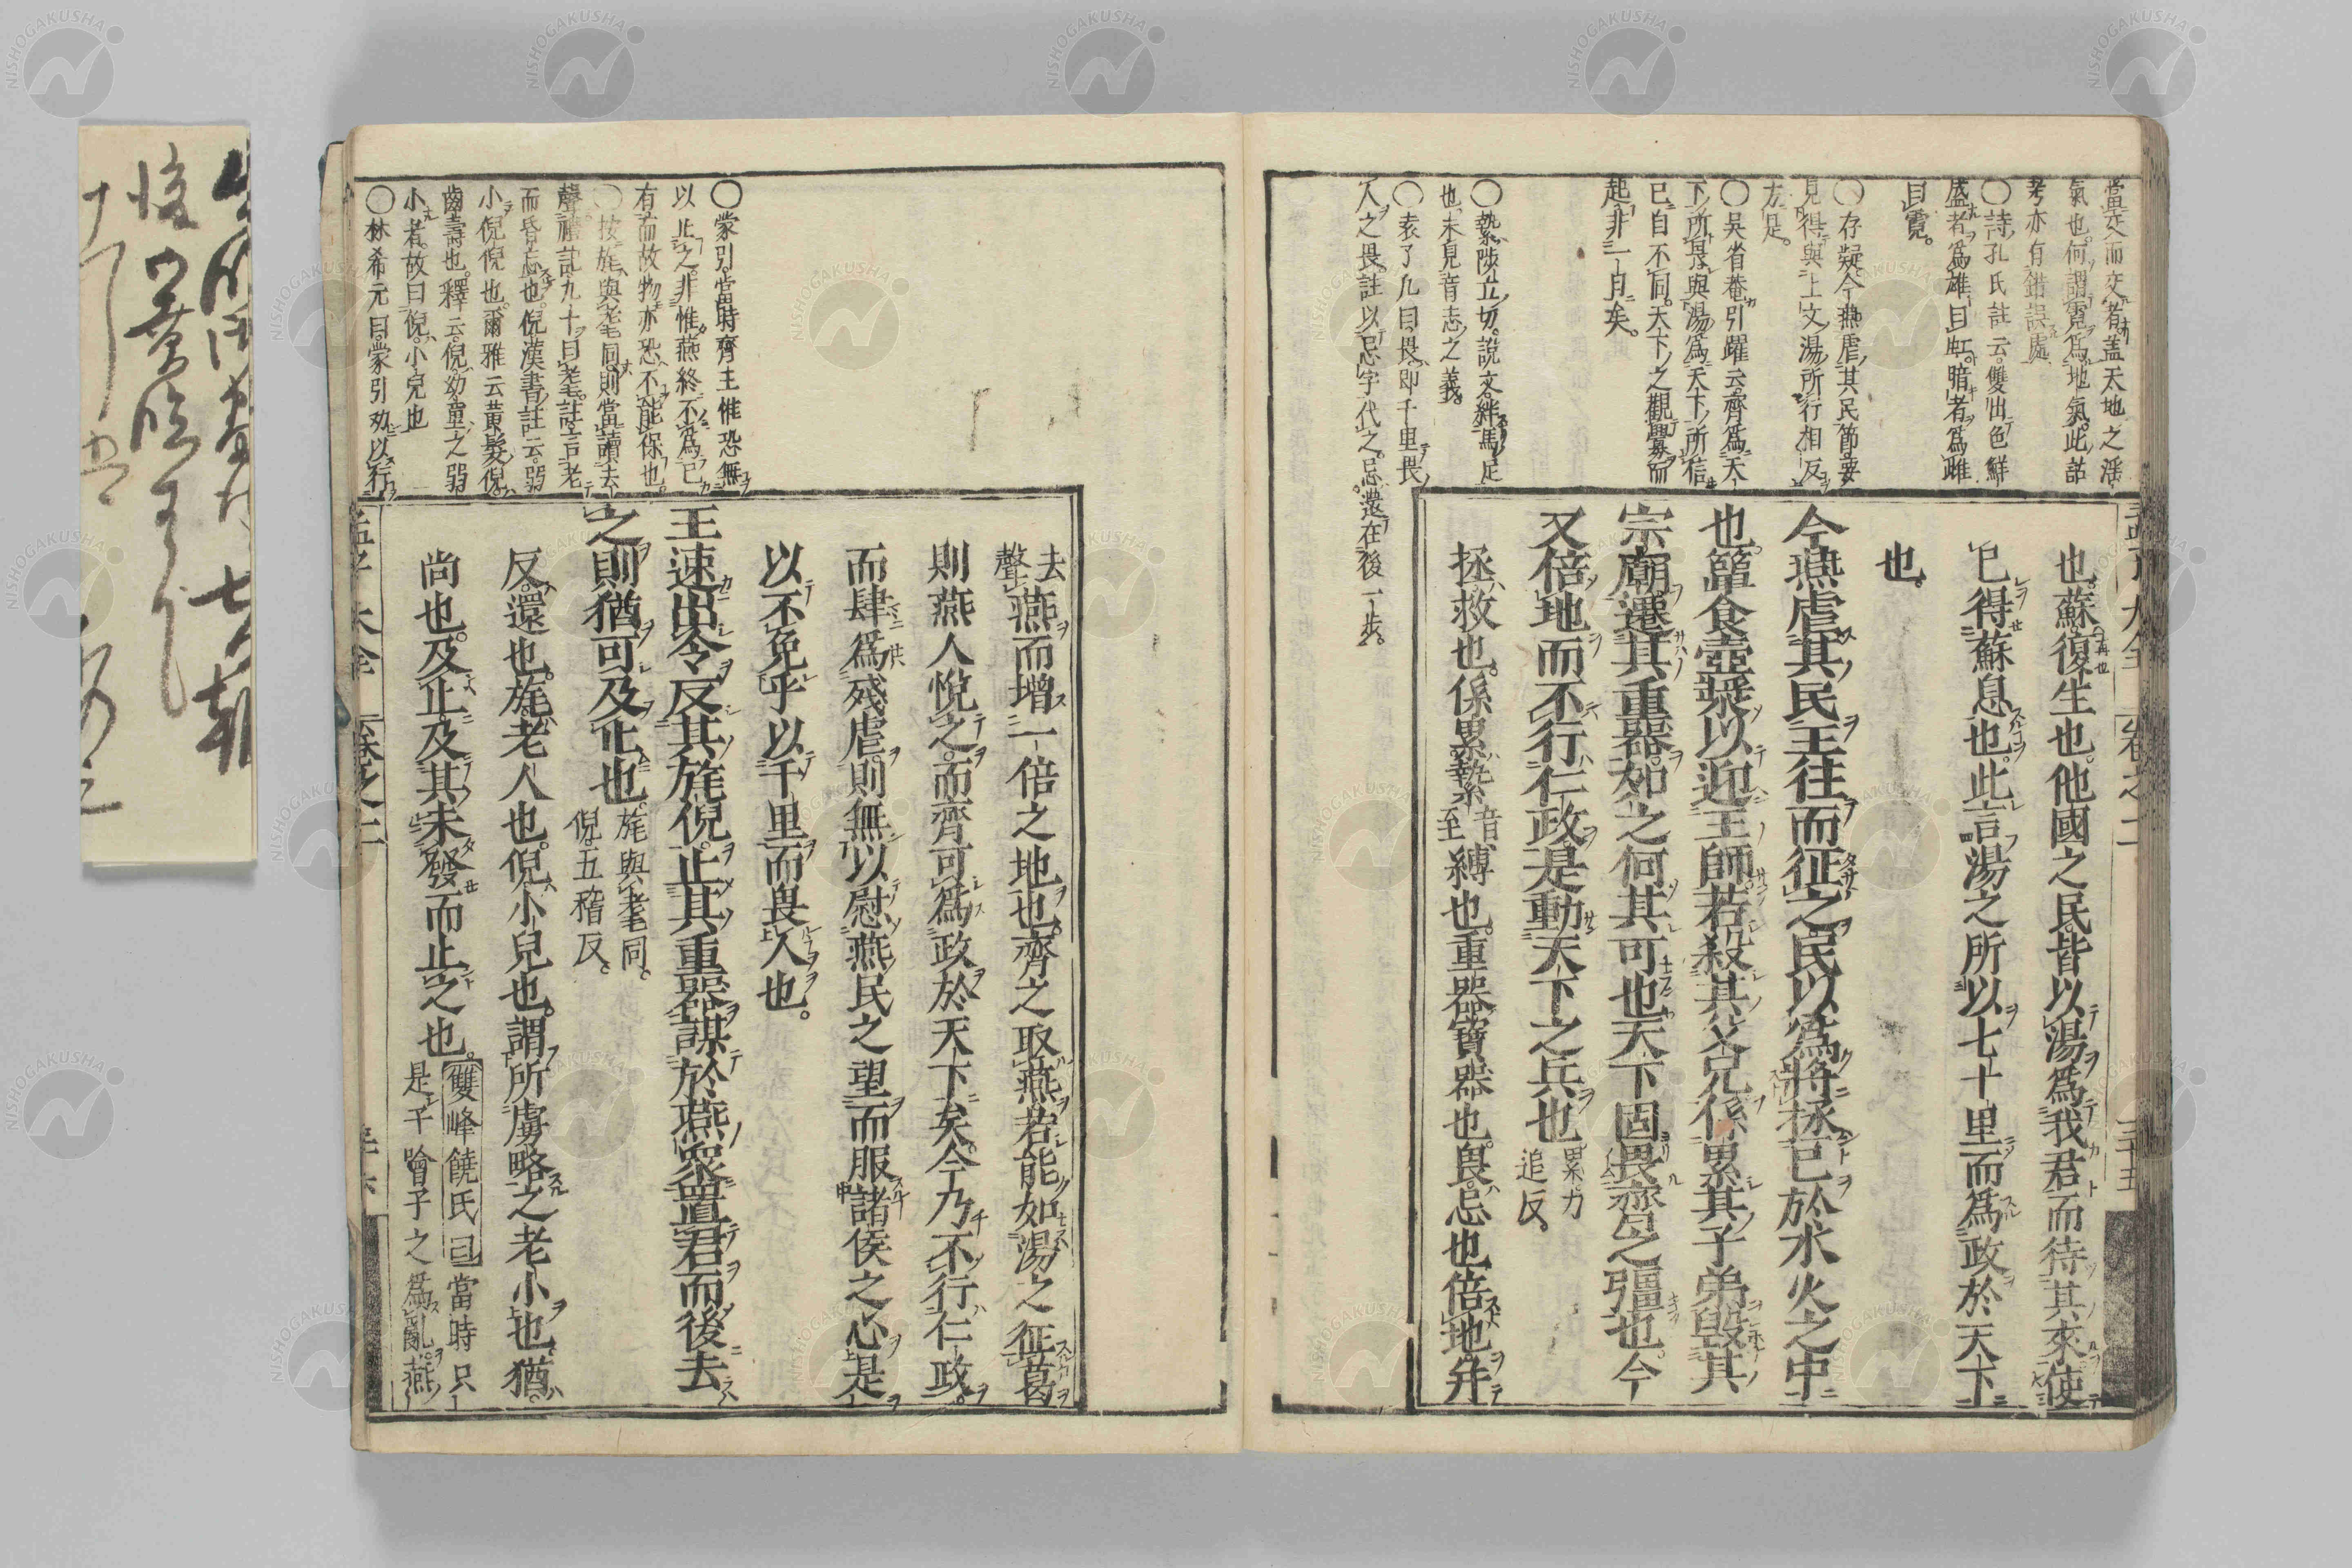 當交而交者蓋天地之淫
氣也何謂霓爲地氣此詁
考亦有錯誤處
〇詩孔氏註云雙出色鮮
盛者爲雄曰虹暗者爲雌
曰霓
〇存疑今燕虐其民節要
見得與上文湯所行相反
方足
〇吳省菴引躍云齊爲天
下所畏與湯爲天下所信
已自不同天下之觀釁而
起非一日矣
〇縶陟立切說文絆馬足
也未見音志之義
〇袁了凡曰畏即千里畏
人之畏註以忌字代之忌還在後一步
也蘇復生也他國之民皆以湯爲我君而待其來使
已得蘇息也此言湯之所以七十里而爲政於天下
也
今燕虐其民王往而征之民以爲將拯已於水火之中
也簞食壺漿以迎王師若殺其父兄係累其子弟毀其
宗廟遷其重器如之何其可也天下固畏齊之彊也今
又倍地而不行仁政是動天下之兵也累力
追反
拯救也係累縶音
至縛也重器寶器也畏忌也倍地幷
〇蒙引當時齊王惟恐無
以止之非惟燕終不爲已
有而故物亦恐不能保也
〇按旄與耄同則當讀去
聲禮記九十曰耄註言老
而昏忘也倪漢書註云弱
小倪倪也爾雅云黃髮倪
齒壽也釋云倪幼童之弱
小者故曰倪小兒也
〇林希元曰蒙引劝以行
去
聲燕而增一倍之地也齊之取燕若能如湯之征葛
則燕人悅之而齊可爲政於天下矣今乃不行仁政
而肆爲殘虐則無以慰燕民之望而服諸侯之心是
以不免乎以千里而畏人也
王速出令反其旄倪止其重器謀於燕衆置君而後去
之則猶可及止也旄與耄同
倪五稽反
反還也旄老人也倪小兒也謂所虜略之老小也猶
尚也及止及其未發而止之也雙峰饒氏曰當時只
是子噲子之爲亂燕